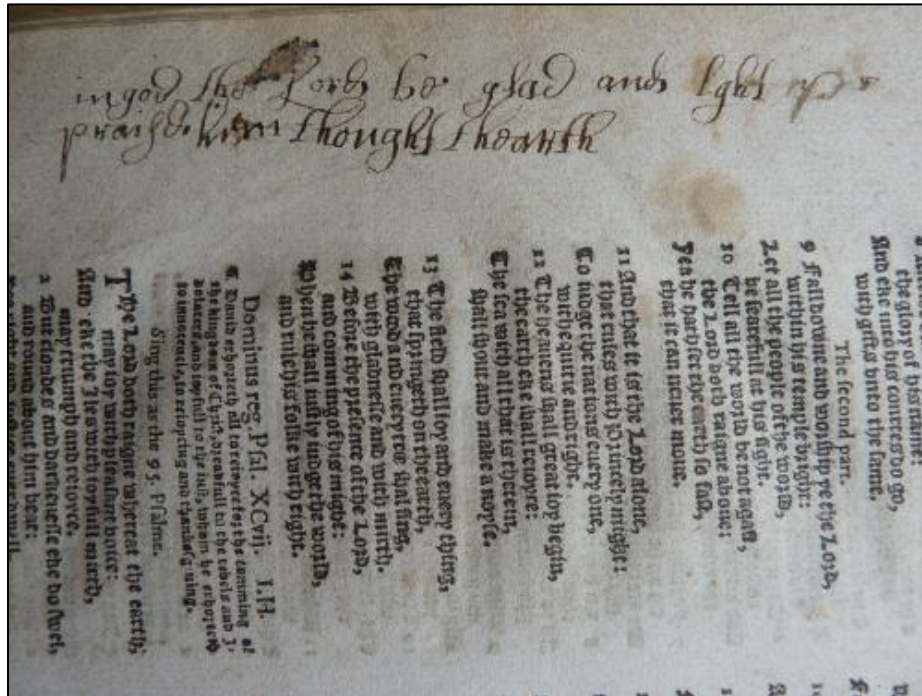 ingod the Lord be glad and lght
praised him thought thearth
the glory of his name:
And eke into his courtes do go,
with gifts vnto the ſame.
The ſecond part.
9 Fall downe and worſhip ye the Lord,
within his temple bright:
Let all the people of the world,
be fearefull at his ſight.
10 Tell all the world be not agaſt,
the Lord doth raigne aboue:
Yea he hath ſet the earth ſo faſt,
that it can neuer moue.
11 And that it is the Lord alone,
that rules with princely might:
To iudge the nations euery one,
with equitie and right.
12 The heauens ſhall great ioy begin,
the earth eke ſhall reioyce:
The ſea with all that is therein,
ſhall ſhout and make a noyſe.
13 The field ſhall ioy and euery thing,
that ſpringeth on the earth,
The wood and euery tree ſhal ſing,
with gladneſſe and with mirth.
14 Before the preſence of the Lord,
and comming of his might:
When he ſhall iuſtly iudge the world,
and rule his folke with right.
Dominus reg. Pſal. XCvij. I.H.
Dauid exhorteth all to reioyce for the comming of
the kingdom of Chriſt, dreadfull to the rebels and I-
dolaters, and ioyfull to the iuſt, whom he exhorteth
to innocencie, to reioycing and thankſgiuing.
Sing this as the 95. Pſalme.
The Lord doth raigne whereat the earth,
may ioy with pleaſant voice:
And eke the Iles with ioyfull mirth,
may triumph and reioyce.
2 Both cloudes and darkneſſe eke do ſwel,
and round about him beat: